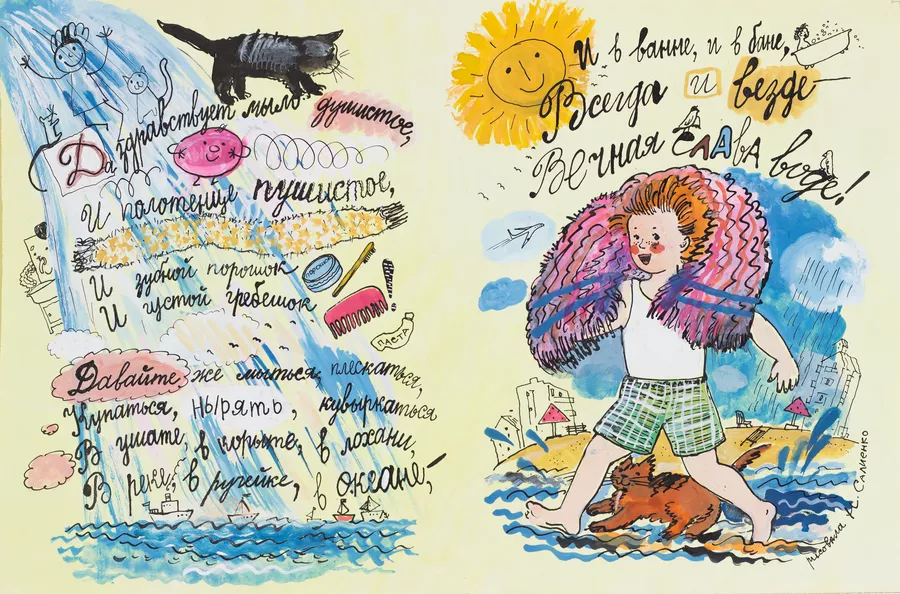 Да здравствует мыло душистое,
И полотенце пушистое,
И зубной порошок
И густой гребешок
ПАСТА
Давайте же мыться, плескаться,
Купаться, нырять, кувыркаться
В ушате, в корыте, в лохани,
В реке, в ручейке, в океане,
И в ванне, и в бане,
Всегда и везде
Вечная слава воде!
рисовала Н Салиенко